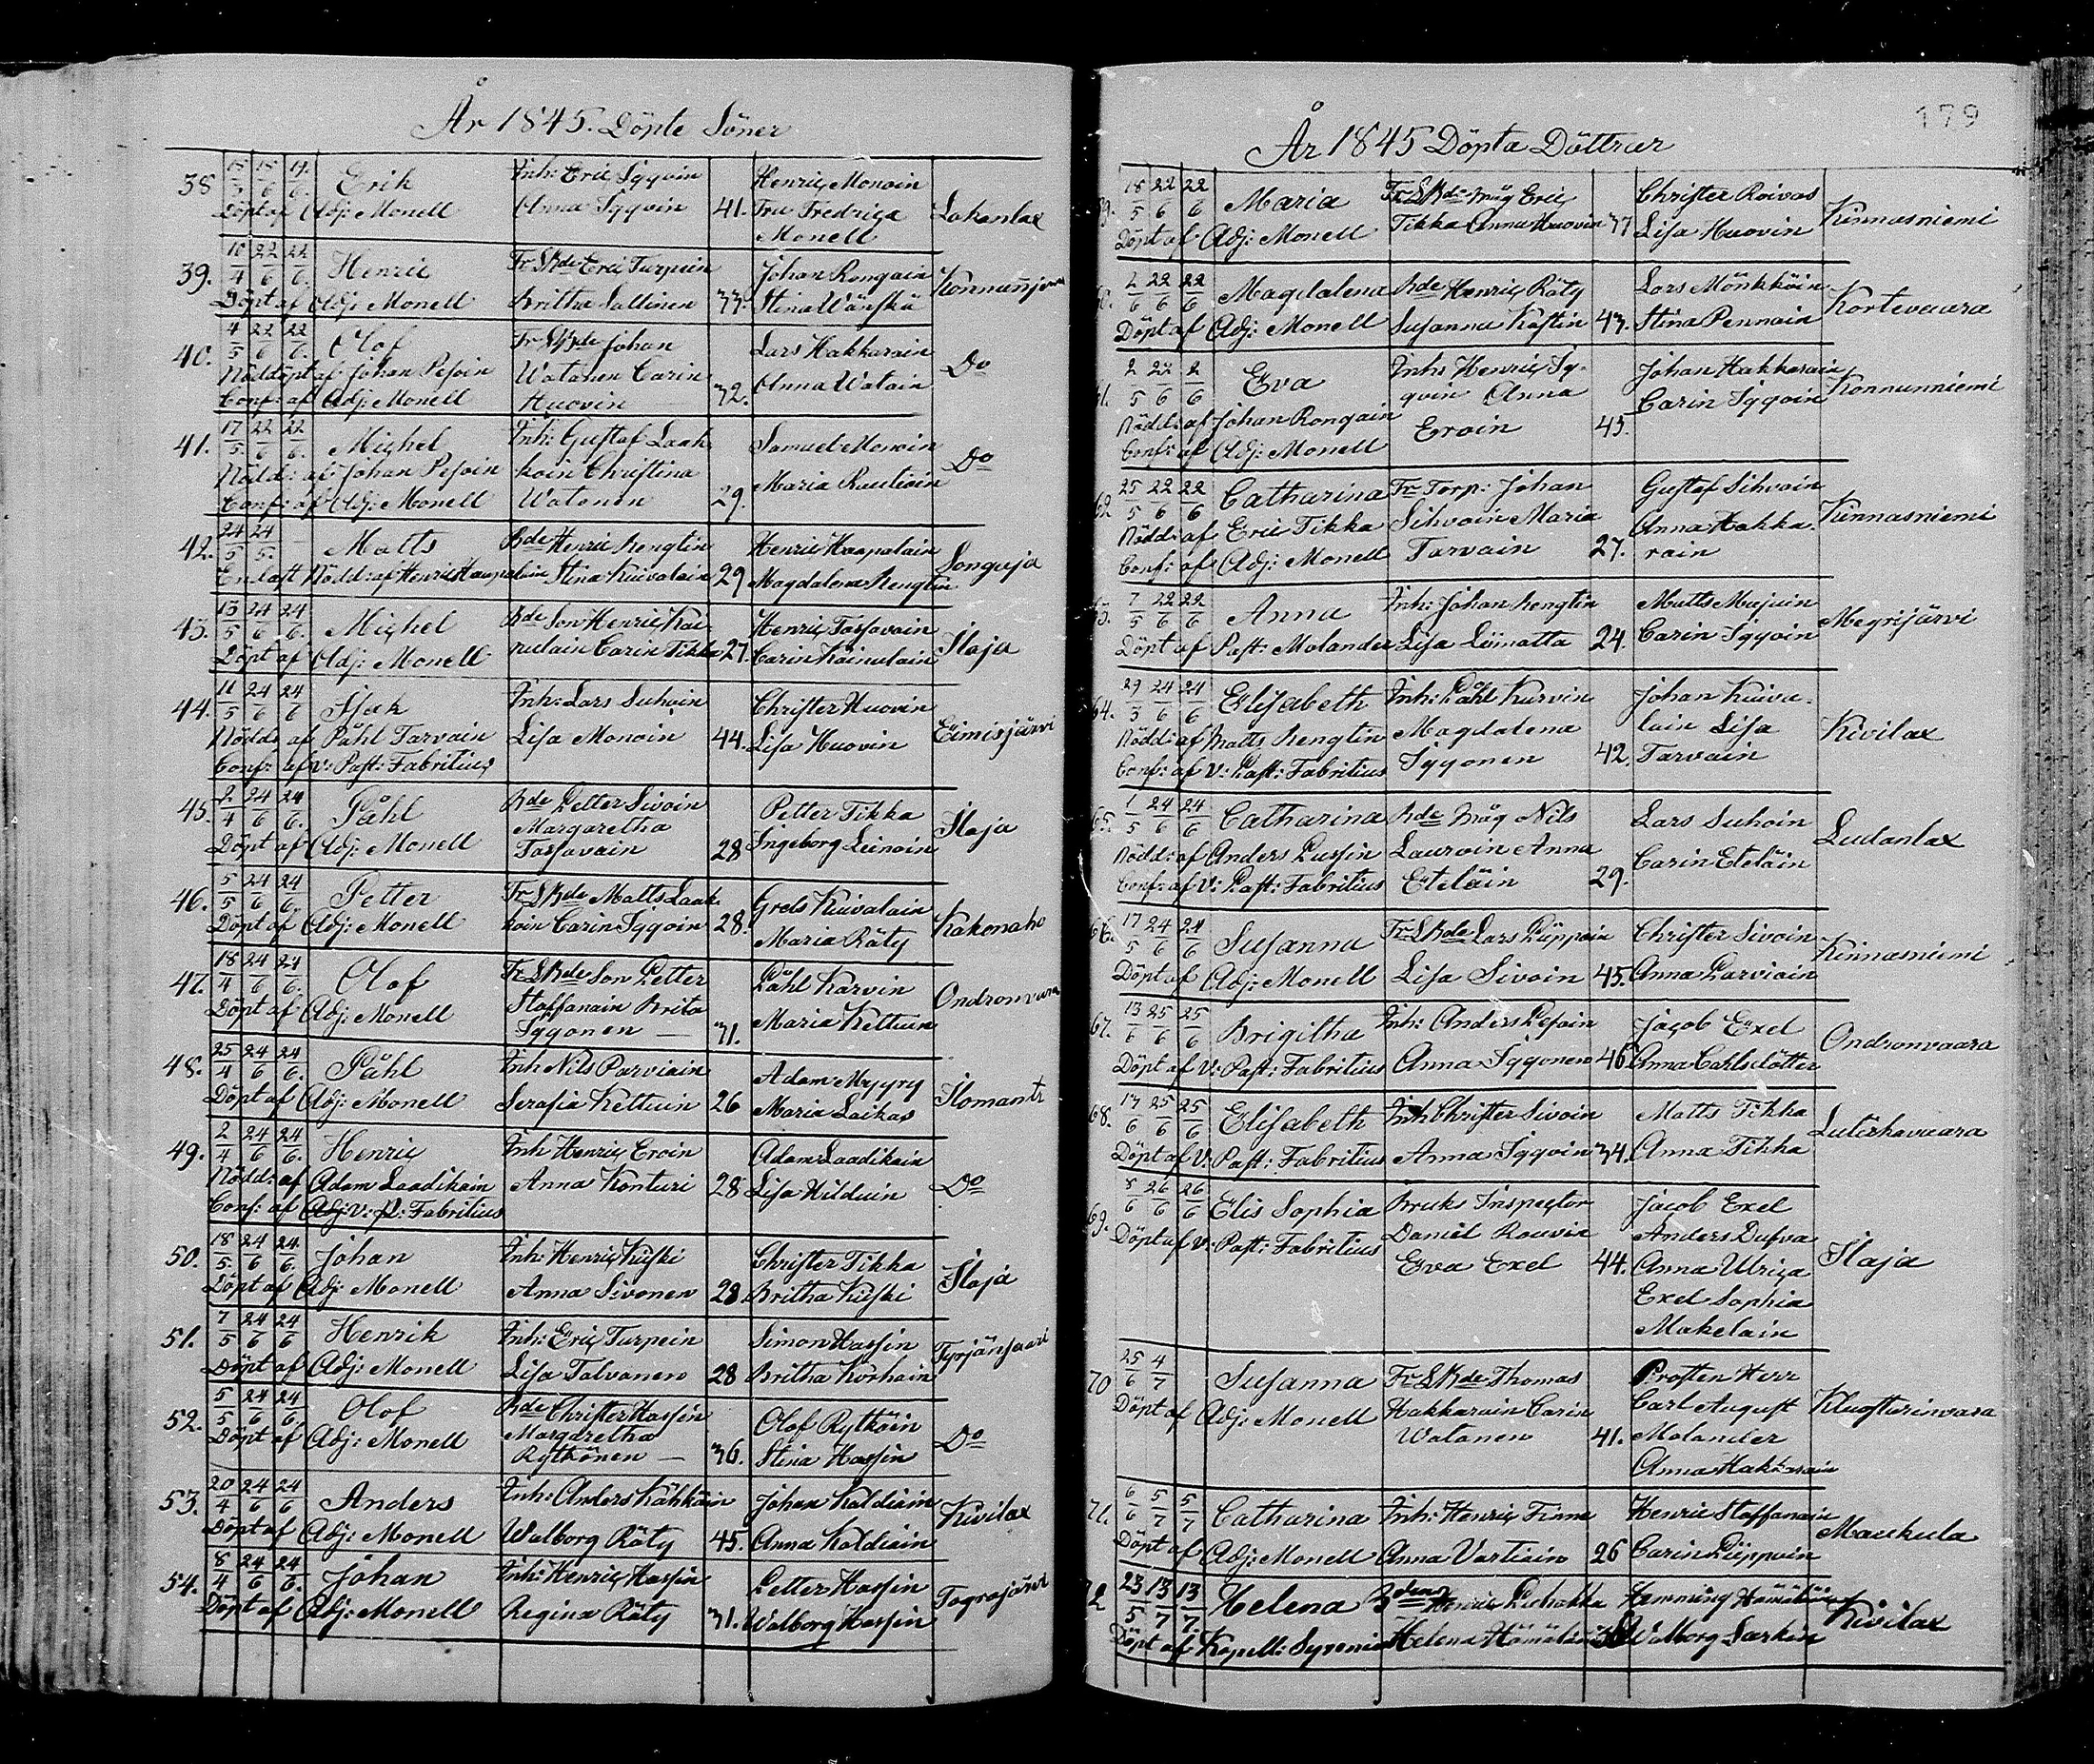 År 1845. Döpte Söner
38 15/3 15/6 17/6. Erik Inh: Eric Iggoin Henric Monoin
Döpt af Adj: Monell Anna Iggoin 41. Fru Fredrica Lakanlax
Monell
39. 10/4 22/6 22/6. Henric Fr SkBde Eric Turpein Johan Rongain Konnunjoma
Döpt af Adj: Monell Britha Sallinen 33. Stina Wänskä
40. 4/5 22/6 22/6. Olof Fr SkBde Johan Lars Hakkarain Do
Nöddöpt af Johan Pesoin Watanen Carin Anna Watain
Conf: af Adj: Monell Huovin 32.
41. 17/5. 22/6 22/6. Michel Inh: Gustaf Laak Samuel Monoin Do
Nödd: af Johan Pesoin koin Christina Maria Rautiain
Conf: af Adj: Monell Watanen 29.
42. 24/5 24/5. Matts Bde Henric Rengtin Henric Haapalain Songaja
Enl: aft Nödd: af Henric Haapalain Stina Kuivalain 29 Magdalena Rengtin
43. 13/5 24/6 24/6. Michel Bde Son Henric Kai Henric Tarsavain Ilaja
Döpt af Adj: Monell nulain Carin Tikka 27. Carin Kainulain
44. 11/5 24/6 24/6 Isak Inh: Lars Suhoin Christer Huovin Eimisjärvi
Nödd: af Påhl Tarvain Lisa Monoin 44. Lisa Huovin
Conf: af V: Past: Fabritius
45. 2/4 24/6 24/6. Påhl Bde Petter Sivoin Petter Tikka Ilaja
Döpt af Adj: Monell Margaretha Ingeborg Leinoin
Tarsavain 28
46. 5/5 24/6 24/6. Petter Fr SkBde Matts Laak Grels Kuivalain Kakonaho
Döpt af Adj: Monell koin Carin Iggoin 28. Maria Räty
47. 18/4 24/6 24/6. Olof Fr SkBde Son Petter Påhl Karvin Ondronvaara
Döpt af Adj: Monell Staffanain Brita Maria Kettuin
Iggonen — 31.
48. 25/4 24/6 24/6. Påhl Inh Nils Parviain Adam Mygryy Ilomants
Döpt af Adj: Monell Serafia Kettuin 26 Maria Laikas
49. 2/4 24/6 24/6. Henric Inh Henric Eroin Adam Laadikain Do
Nödd: af Adam Laadikain Anna Konturi 28 Lisa Hilduin
Conf: af Adj: V: P: Fabritius
50. 18/5. 24/6 24/6. Johan Inh: Henric Kuiski Christer Tikka Ilaja
Döpt af Adj: Monell Anna Sivonen 28 Britha Kuiski
51. 7/5 24/6 24/6 Henrik Inh: Eric Turpein Simon Hassin Tyrjänsaari
Döpt af Adj: Monell Lisa Talvanen 28 Britha Korhain
52. 5/5 24/6 24/6. Olof Bde Christer Hassin Olof Rytköin Do
Döpt af Adj: Monell Margaretha Stina Hassin
Rytkönen — 36.
53. 20/4 24/6 24/6 Anders Inh: Anders Kähköin Johan Koldiain Kivilax
Döpt af Adj: Monell Walborg Räty 45. Anna Koldiain
54. 8/4 24/6 24/6. Johan Inh: Henric Hassin Petter Hassin
Döpt af Adj: Monell Regina Räty 31. Walborg Hassin
179
År 1845 Döpta Döttrar
18/5 22/6 22/6 Maria Fr SkBde måg Eric Christer Roivas Kinnasniemi
Döpt af Adj: Monell Tikka Anna Huovin 37 Lisa Huovin
2/6 22/6 22/6 Magdalena Bde Henric Räty Lars Mönkköin Kortevaara
Döpt af Adj: Monell Susanna Kastin 43. Stina Pennain
2/5 22/6 2/6 Eva Inh: Henric Ig- Johan Hakkarain Konnunniemi
Nödd: af Johan Rongain goin Anna Carin Iggoin
Conf: af Adj: Monell Eroin 45.
62 25/5 22/6 22/6 Catharina Fr Torp: Johan Gustaf Sihvain Kinnasniemi
Nödd: af Eric Tikka Sihvoin Maria Anna Hakka-
Conf: af Adj: Monell Tarvain 27. rain
7/5 22/6 22/6 Anna Inh: Johan Rengtin Matts Mujuin Megrijärvi
Döpt af Past: Molander Lisa Liimatta 24. Carin Iggoin
64. 29/3 24/6 24/6 Elisabeth Inh: Påhl Kurvin Johan Kuiva- Kivilax
Nödd: af Matts Rengtin Magdalena lain Lisa
Conf: af V: Past: Fabritius Iggonen 42. Tarvain
65. 1/5 24/6 24/6 Catharina Bde måg Nils Lars Suhoin Ludanlax
Nödd: af Anders Pussin Lauroin Anna Carin Eteläin
Conf: af V: Past: Fabritius Eteläin 29.
66. 17/5 24/6 24/6 Susanna Fr SkBde Lars Piippoin Christer Sivoin Kinnasniemi
Döpt af Adj: Monell Lisa Sivoin 45. Anna Parviain
67. 13/6 25/6 25/6 Brigitha Inh: Anders Pesoin Jacob Exel Ondronvaara
Döpt af V: Past: Fabritius Anna Iggonen 46 Anna Carlsdotter
68. 17/6 25/6 25/6 Elisabeth Inh Christer Sivoin Matts Tikka Lutiskavaara
Döpt af V: Past: Fabritius Anna Iggoin 34. Anna Tikka
69. 8/6 26/6 26/6 Elis Sophia Bruks Inspector Jacob Exel Ilaja
Döpt af V: Past: Fabritius Daniel Rouvia Anders Dufva
Eva Exel 44. Anna Ulrica
Exel Sophia
Makelain
70 25/6 4/7 Susanna Fr SkBde Thomas Prosten Herr
Döpt af Adj: Monell Hakkarain Carin Carl August
Watanen 41. Molander
Anna Hakkarain
71. 6/6 5/7 5/7 Catharina Inh: Henric Finne Henric Staffanain Maukula
Döpt af Adj: Monell Anna Vartiain 26 Carin Piippoin
72 23/5 13/7 13/7. Helena Henric Hemming Hämäläin Kivilax
Döpt af Kapell: Helena Hämäläin Walborg Sarkin